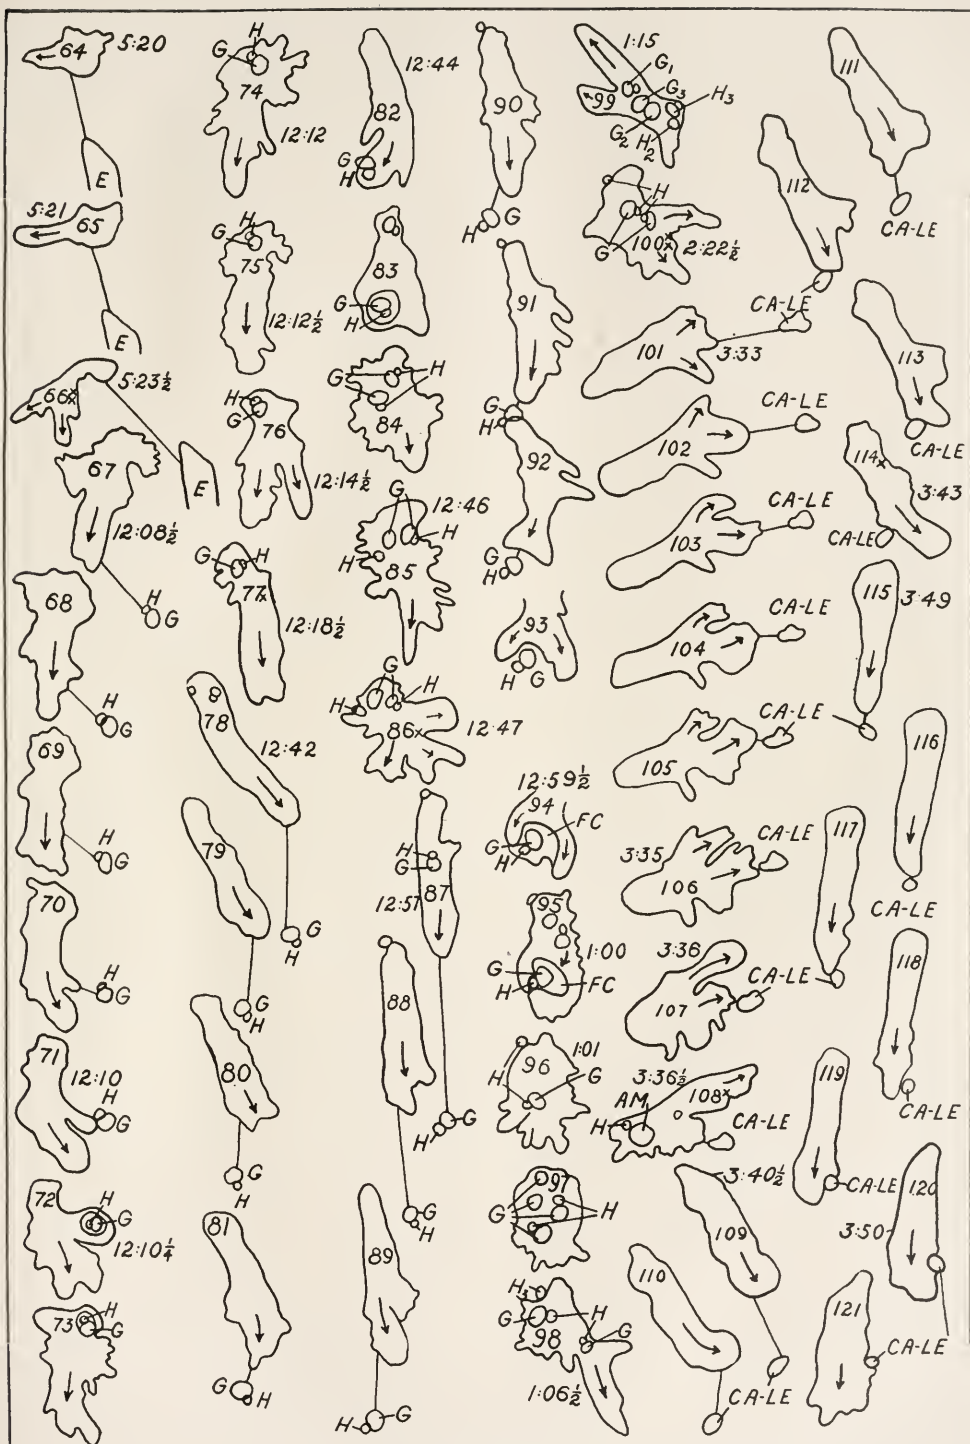 64 5:20
E
5:21 65
E
66x 5:23½
E
67
12:08½
H
G
68
H
G
69
H
G
70
H
G
71 12:10
H
G
72
H
G
12:10¼
73
H
G
H
G
74
12:12
H
G
75
12:12½
H
G
76
12:14½
G H
77x
12:18½
78
12:42
G
H
79
G
H
80
G
H
81
G H
82
12:44
G
H
83
G
H
84
H
G
12:46
G
H
H
85
G
H
H
86x
12:47
H
G
87
12:57
H G
88
G
H
89
H G
90
H G
91
G
H
92
G
H
93
H G
12:59½
94
FC
G
H
95
1:00
G
H
FC
96
1:01
H
G
97
G
H
H3
G
H
98
H
G
1:06½
1:15
99
G1
G3
H3
G2
H2
H
100x
G
2:22½
101
3:33
CA-LE
102
CA-LE
103
CA-LE
104
CA-LE
105
CA-LE
3:35
106
CA-LE
3:36
107
CA-LE
3:36½
108x
AM
H
CA-LE
109
3:40½
110
CA-LE
111
CA-LE
112
113
CA-LE
114x
3:43
CA-LE
115 3:49
116
CA-LE
117
118
CA-LE
119
CA-LE
120
3:50
121
CA-LE